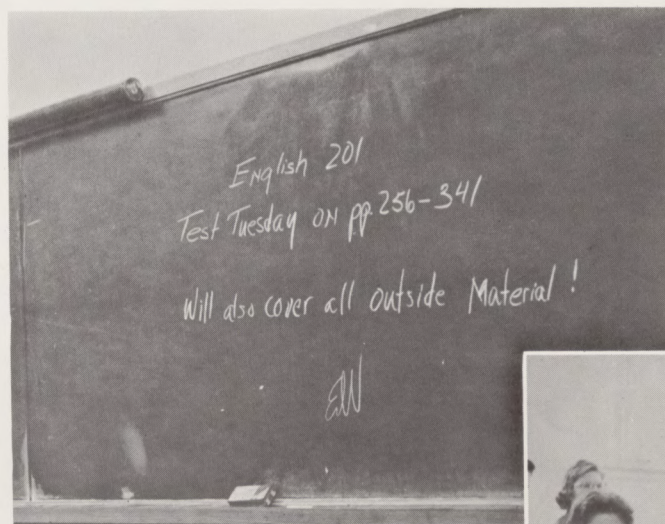 English 201
Test Tuesday on pp. 256-341
Will also cover all outside Material!
EW